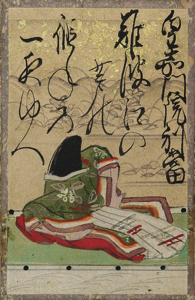 皇嘉門院別當
難波江の
芦の
かりねの
一夜ゆへ